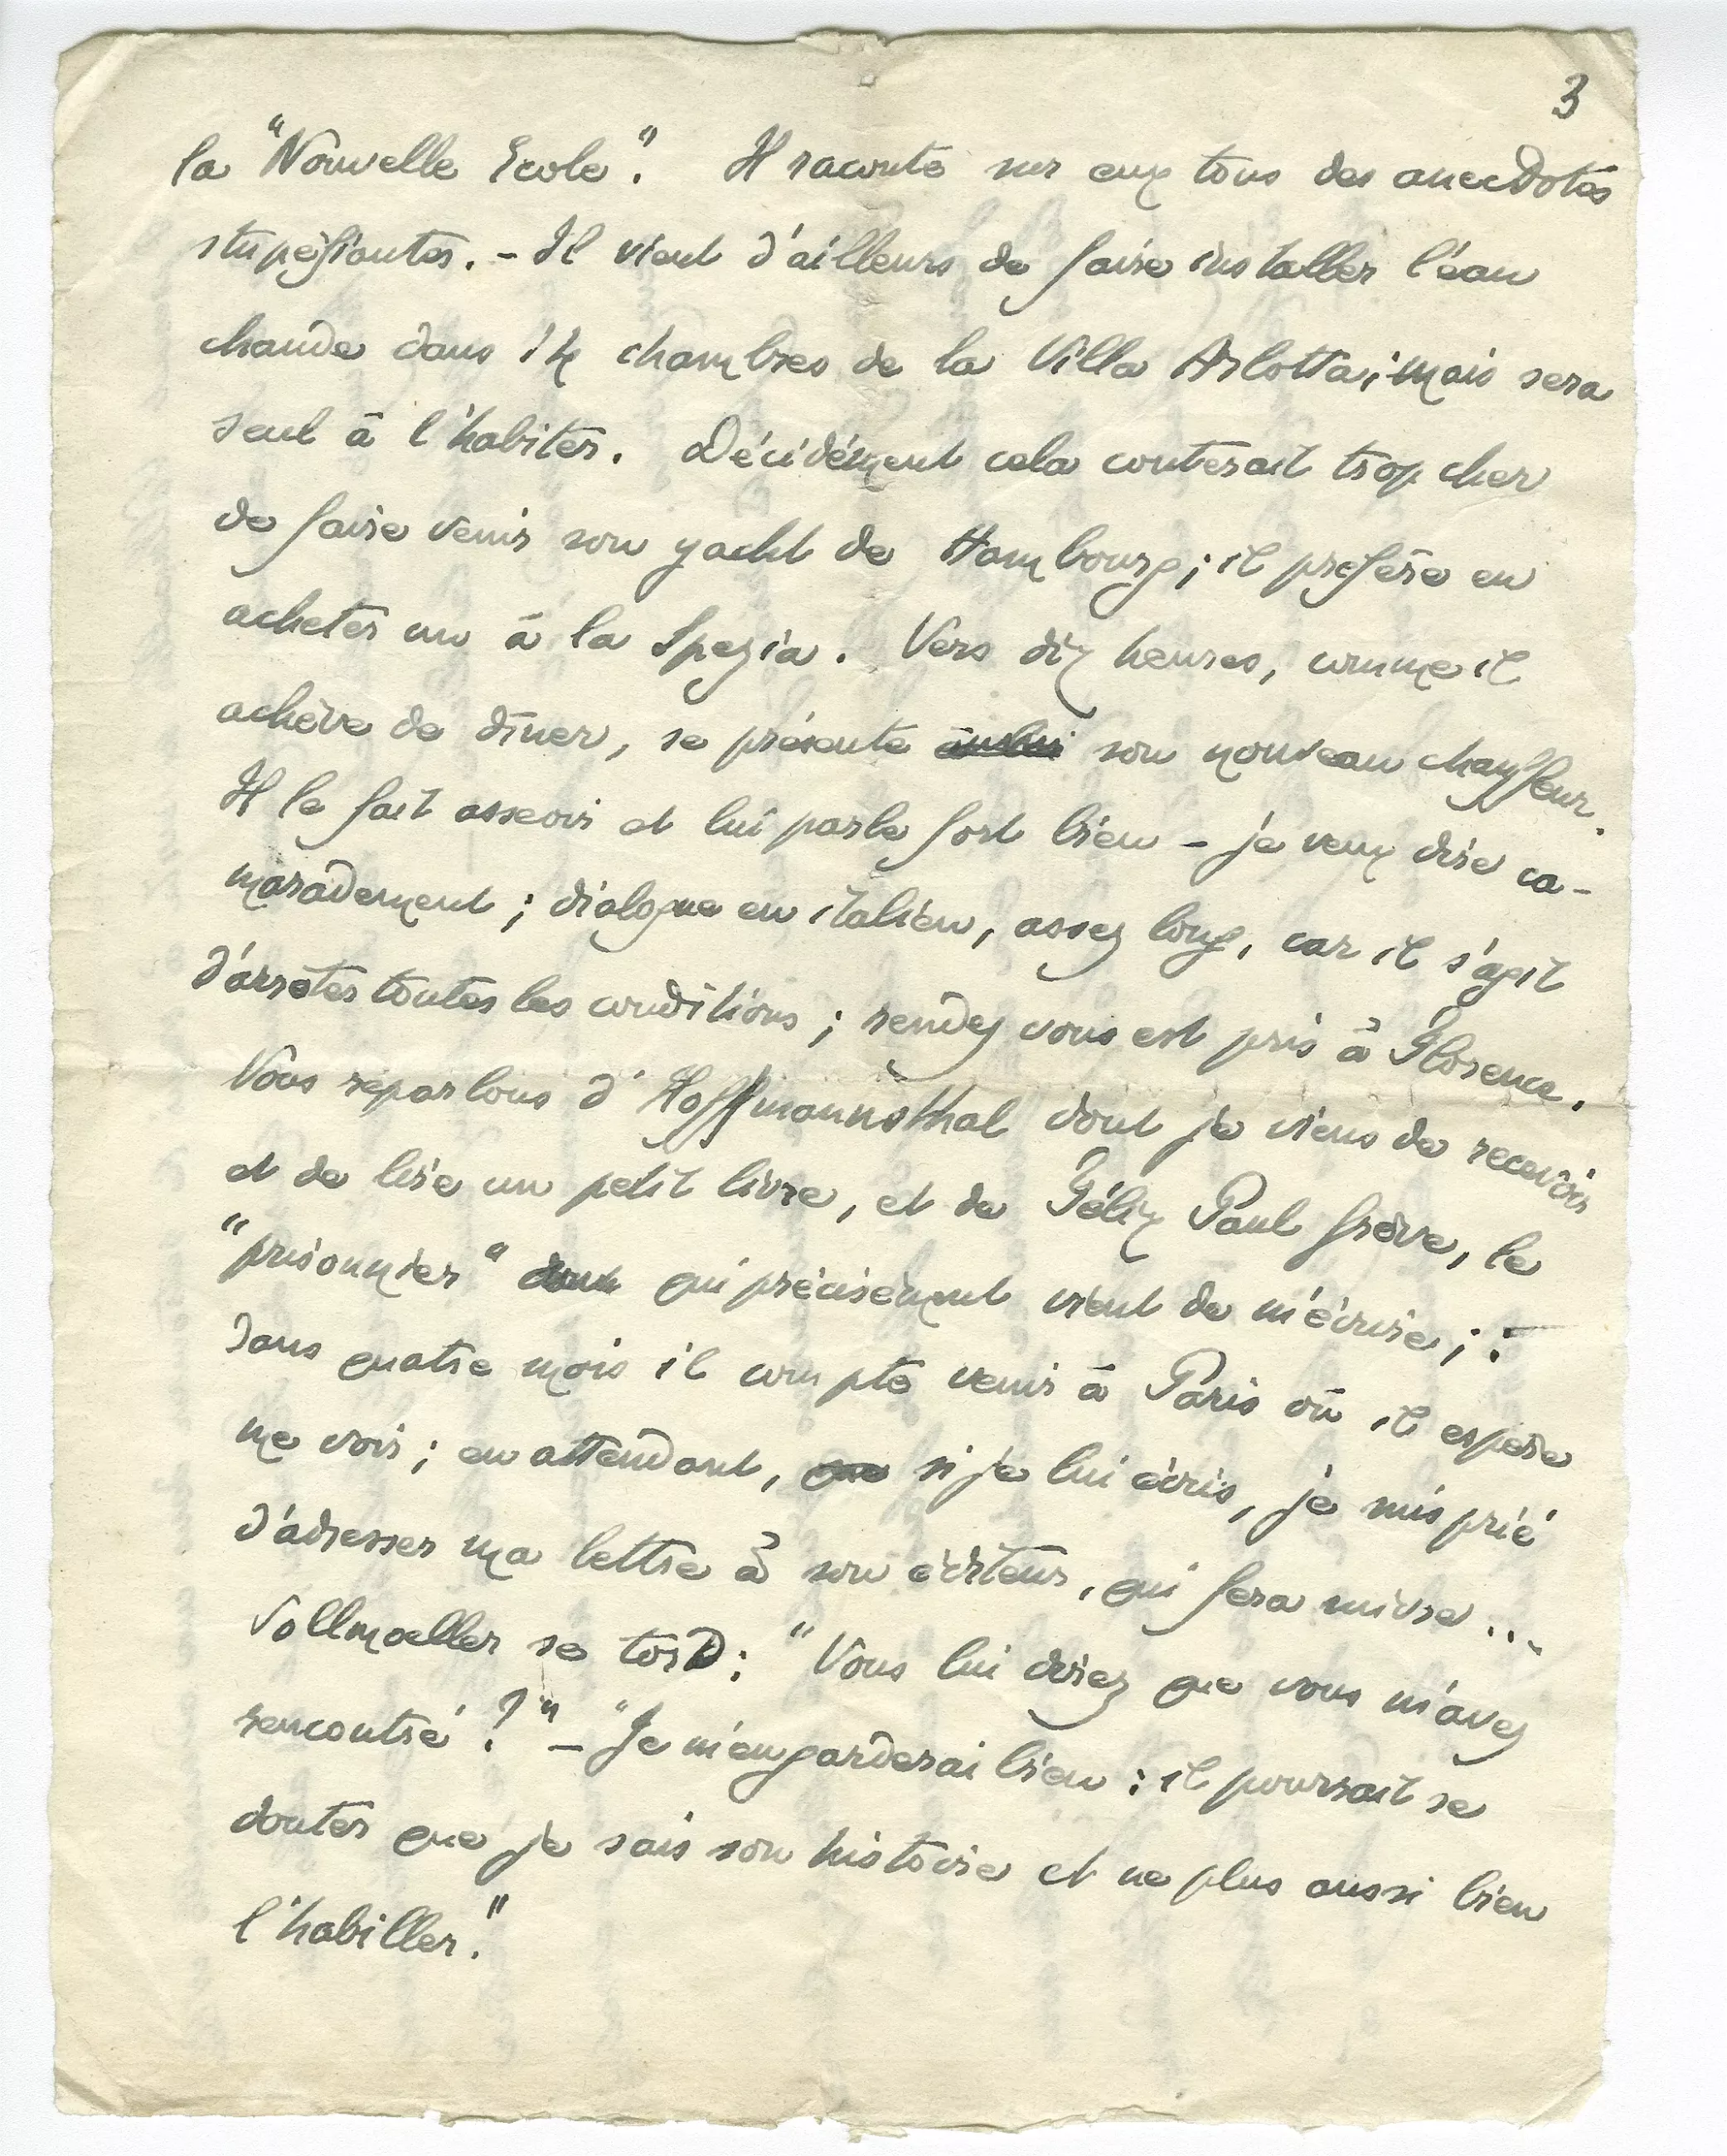 3
la "Nouvelle Ecole". Il raconte sur eux tous des anecdotes
stupéfiantes. - Il vient d'ailleurs de faire installer l'eau
chaude dans 14 chambres de la Villa Arlotta; mais sera
seul à l'habiter. Décidément cela couterait trop cher
de faire venir son yacht de Hambourg; il préfère en
acheter un à la Spezia. Vers dix heures, comme il
achève de dîner, se présente son nouveau chauffeur.
Il le fait asseoir et lui parle fort bien - je veux dire ca-
maradement; dialogue en italien, assez long, car il s'agit
d'arrêter toutes les conditions; rendez vous est pris à Florence.
Nous reparlons d'Hoffmannsthal dont je viens de recevoir
et de lire un petit livre, et de Félix Paul Grève, le
"prisonnier" qui précisément vient de m'écrire; :
Dans quatre mois il compte venir à Paris où il espère
me voir; en attendant, si je lui écris, je suis prié
d'adresser ma lettre à son éditeur, qui fera suivre...
Vollmoeller se tord: "Vous lui direz que vous m'avez
rencontré?" - "Je m'en garderai bien: il pourrait se
douter que je sais son histoire et ne plus aussi bien
l'habiller."